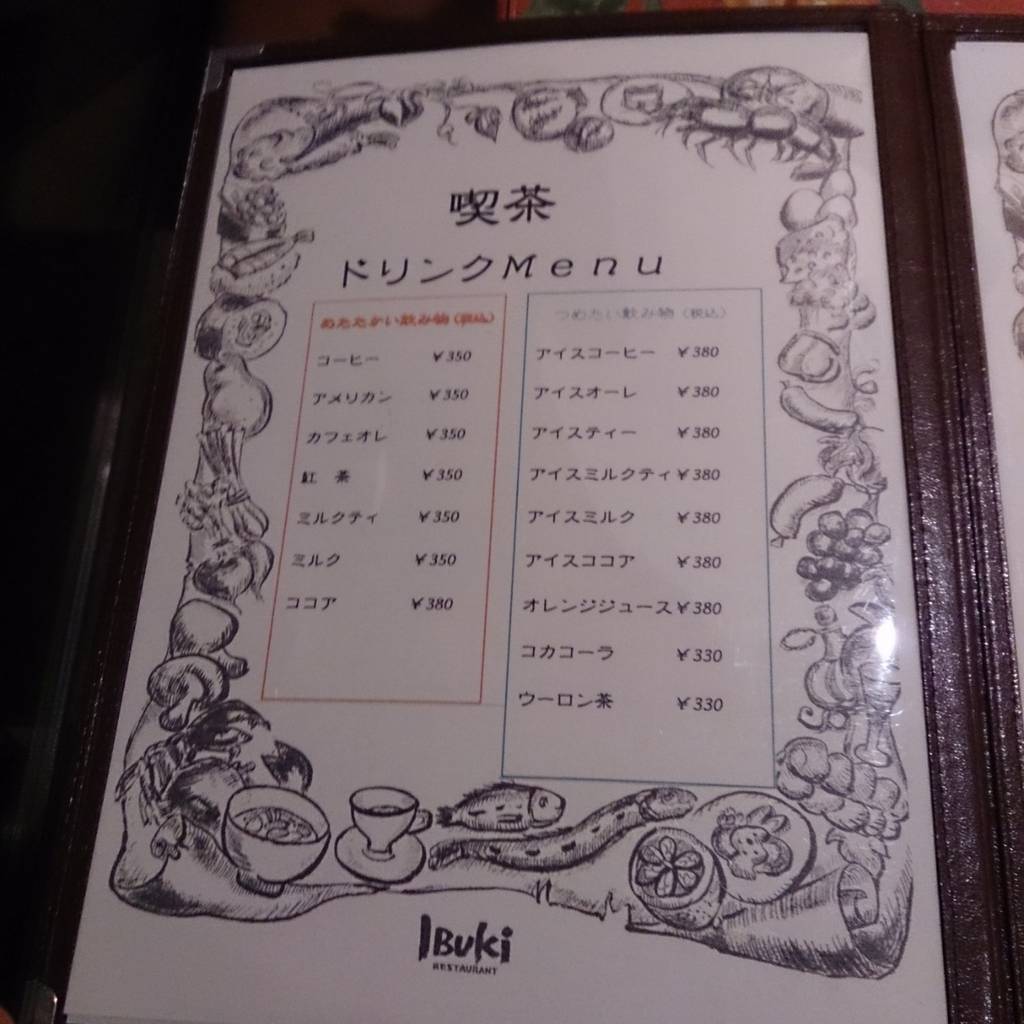 喫茶
ドリンクMenu
あたたかい飲み物（税込）
コーヒー ￥350
アメリカン ￥350
カフェオレ ￥350
紅　茶 ￥350
ミルクティ ￥350
ミルク ￥350
ココア ￥380
つめたい飲み物（税込）
アイスコーヒー ￥380
アイスオーレ ￥380
アイスティー ￥380
アイスミルクティ￥380
アイスミルク ￥380
アイスココア ￥380
オレンジジュース￥380
コカコーラ ￥330
ウーロン茶 ￥330
IBUKi
RESTAURANT